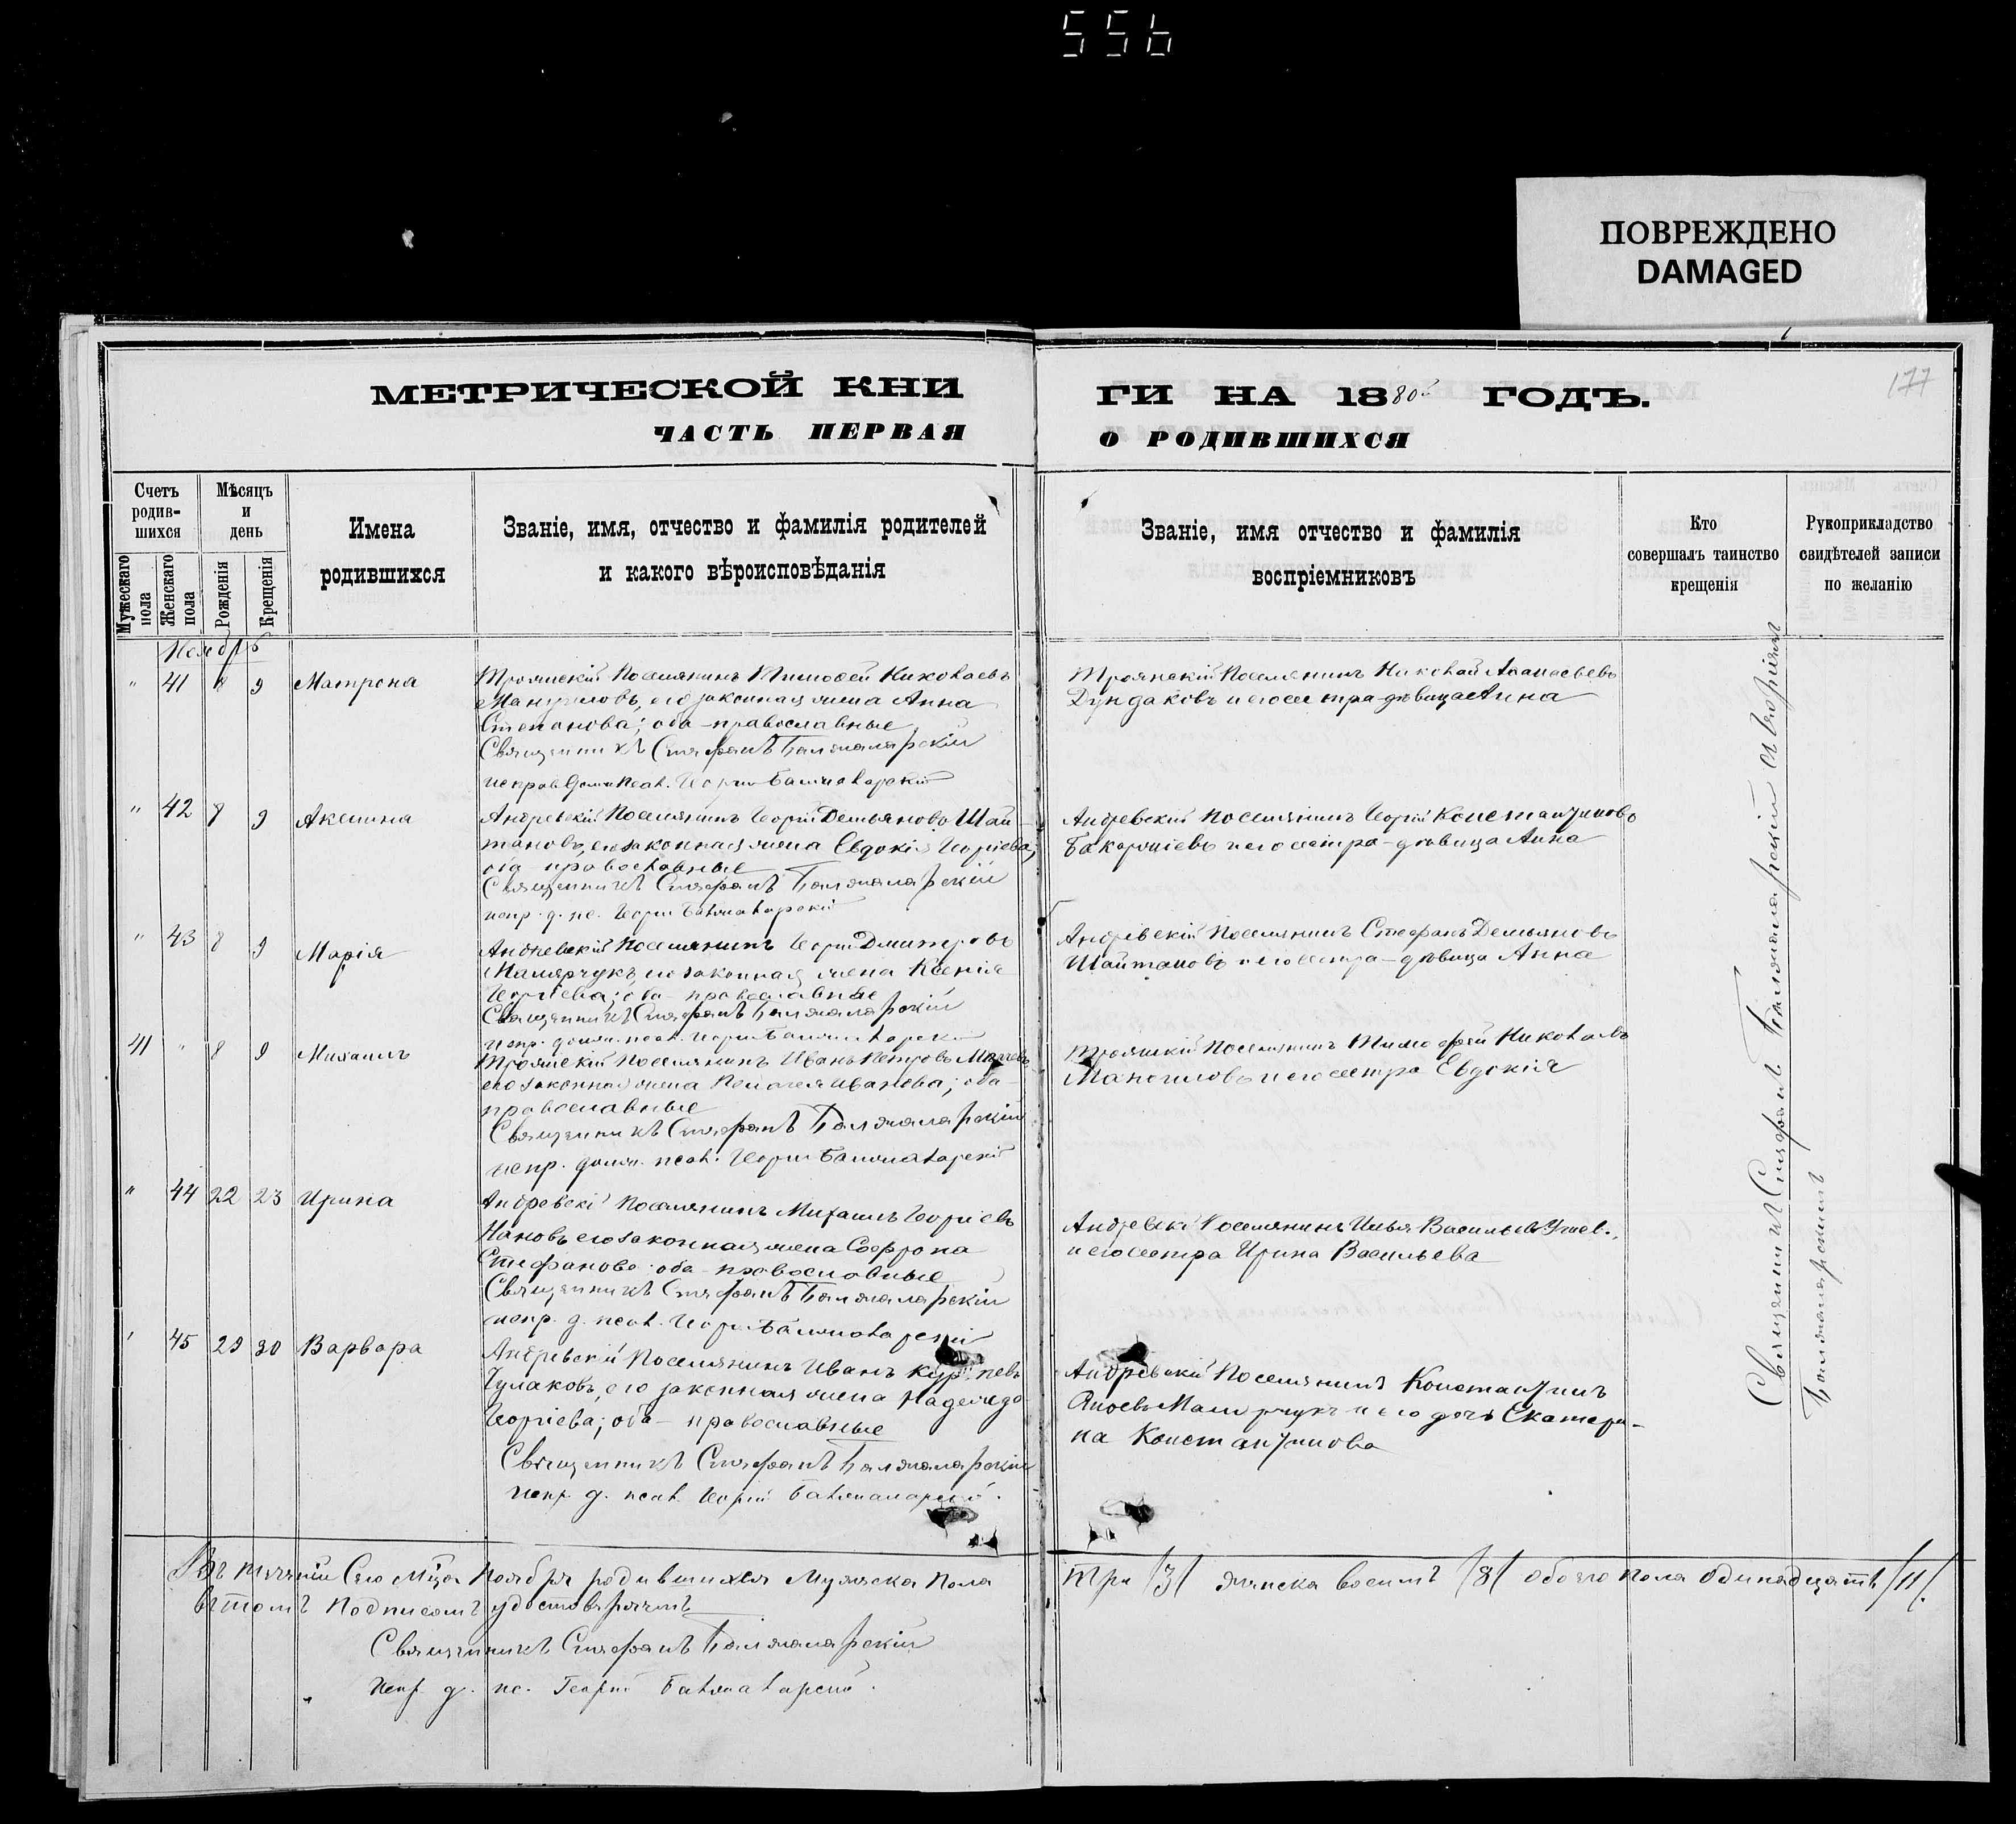 556
ПОВРЕЖДЕНО
DAMAGED
177
МЕТРИЧЕСКОЙ КНИ
ГИ НА 1880 ГОДЪ.
ЧАСТЬ ПЕРВАЯ
О РОДИВШИХСЯ
Счетъ родив-шихся
Мѣсяцъ и день
Имена родившихся
Званіе, имя, отчество и фамилія родителей
и какого вѣроисповѣданія
Званіе, имя отчество и фамилія
воспріемниковъ
Кто совершалъ таинство крещенія
Рукоприкладство свидѣтелей записи по желанію
Мужескаго пола
Женскаго пола
Рожденія
Крещенія
Ноябрь
" 41 8 9 Матрона
Троянскій Поселянинъ Тимофей Николаевъ
Манушловъ, его законная жена Анна
Степанова; оба православные
Священникъ Стефанъ Балжаларскій
Георгій Балжаларскій
Троянскій Поселянинъ Николай Афанасьевъ
Дундаковъ и его сестра девица Анна
" 42 8 9 Аксинна
Андревскій Поселянинъ Георгій Демьяновъ Шай-
тановъ, его законная жена Евдокія Георгіева;
оба православные
Священникъ Стефанъ Балжаларскій
испр. д. пс. Георгій Балжаларскій
Андревскій Поселянинъ Георгій Константиновъ
и его сестра-девица Анна
" 43 8 9 Марія
Андревскій Поселянинъ Георгій Дмитровъ
Малярчукъ, его законная жена Ксенія
Георгіева; оба православные
Священникъ Стефанъ Балжаларскій
испр. должн. псал. Георгій Балжаларскій
Андревскій Поселянинъ Стефанъ Демьяновъ
Шайтановъ и его сестра-девица Анна
41 " 8 9 Михаилъ
Троянскій Поселянинъ Иванъ Петровъ
его законная жена Пелагея Иванова; оба
православные
Священникъ Стефанъ Балжаларскій
испр. должн. псал. Георгій Балжаларскій
Троянскій Поселянинъ Тимофей Николаевъ
Маноиловъ и его сестра Евдокія
" 44 22 23 Ирина
Андревскій Поселянинъ Михаилъ Георгіевъ
Нановъ его законная жена Софрона
Стефанова оба православные
Священникъ Стефанъ Балжаларскій
испр. д. псал. Георгій Балжаларскій
Андревскій Поселянинъ Илья Васильевъ
и его сестра Ирина Васильева
" 45 29 30 Варвара
Андревскій Поселянинъ Иванъ
Чулаковъ, его законная жена Надежда
Георгіева; оба православные
Священникъ Стефанъ Балжаларскій
испр. д. псал. Георгій Балжаларскій.
Андревскій Поселянинъ Константинъ
Малярчукъ и его дочь Екатери-
на Константинова
Священникъ Стефанъ Балжаларскій
Балжаларскимъ
Въ теченіи Сего Мца Ноября родившихся Мужеска Пола
Три /3/ женска восемь /8/ обоего пола одинадцать /11/.
въ томъ Подписомъ удостовѣряемъ
Священникъ Стефанъ Балжаларскій
испр. д. пс. Георгій Балжаларскій.